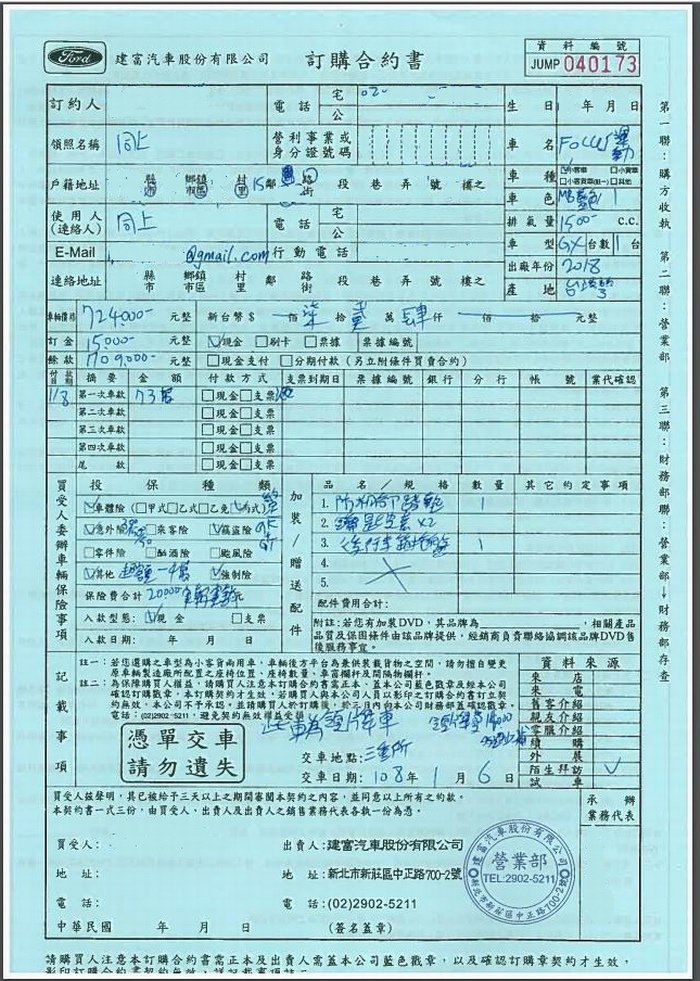 Ford 建富汽車股份有限公司 訂購合約書
資料編號
JUMP 040173
訂約人 電話 宅 02- 公 生日 年 月 日
領照名稱 同上 營利事業或身分證號碼 車名 Focus 運動
戶籍地址 縣市 鄉鎮市區 村里 15 鄰 路街 段 巷 弄 號 樓之
車種 小客車 小貨車 小客貨車(租一) 其他
車色
使用人(連絡人) 同上 電話 宅 公
排氣量 1500- C.C.
E-Mail @gmail.com 行動電話
車型 台數 1 台
連絡地址 縣市 鄉鎮市區 村里 鄰 路街 段 巷 弄 號 樓之
出廠年份 2018
產地
車輛價格 724,000- 元整 新台幣$ 佰 柒 拾 貳 萬 肆 仟 佰 拾 元整
訂金 15,000- 元整 現金 刷卡 票據 票據編號
餘款 709,000- 元整 現金支付 分期付款(另立附條件買賣合約)
付款日期 摘要 金額 付款方式 支票到期日 票據編號 銀行 分行 帳號 業代確認
1/8 第一次車款 73萬 現金 支票
第二次車款 現金 支票
第三次車款 現金 支票
第四次車款 現金 支票
尾款 現金 支票
買受人委辦車輛保險事項
投保種類
車體險 (甲式 乙式 乙免 丙式)
意外險 乘客險 竊盜險
零件險 酗酒險 颱風險
其他 強制險
保險費合計 20000
入款型態: 現金 支票
入款日期: 年 月 日
加裝/贈送配件
品名/規格 數量 其它約定事項
1. 1
2. x2
3. 1
4.
5.
配件費用合計:
附註:若您有加裝DVD,其品牌為 ,相關產品
品質及保固條件由該品牌提供,經銷商負責聯絡協調該品牌DVD售
後服務事宜。
記載事項
註一:若您選購之車型為小客貨兩用車,車輛後方平台為兼供裝載貨物之空間,請勿擅自變更
原車輛製造廠所配置之座椅位置、座椅數量、車窗欄杆及間隔物欄杆。
註二:為保障購買人權益,請購買人注意本訂購合約書需正本、蓋本公司藍色戳章及經本公司
確認訂購戳章,本訂購契約才生效,若購買人與本公司人員以影印之訂購合約書訂立契
約無效,本公司不予承認。並請購買人於訂購後,於三日內向本公司財務部蓋確認戳章。
電話:(02)2902-5211,避免契約無效權益受損。
憑單交車
請勿遺失
交車地點:
交車日期: 108 年 1 月 6 日
資料來源
來店
來電
舊客介紹
親友介紹
零服介紹
續購
外展
陌生拜訪
試車
買受人茲聲明,其已被給予三天以上之期間審閱本契約之內容,並同意以上所有之約款。
本契約書一式三份,由買受人、出賣人及出賣人之銷售業務代表各執一份為憑。
承辦業務代表
買受人: 出賣人:建富汽車股份有限公司
地址: 地址:新北市新莊區中正路700-2號
電話: 電話:(02)2902-5211
中華民國 年 月 日 (簽名蓋章)
建富汽車股份有限公司
營業部
TEL:2902-5211
新北市新莊區中正路700-2號
請購買人注意本訂購合約書需正本及出賣人需蓋本公司藍色戳章,以及確認訂購章契約才生效,
第一聯:購方收執 第二聯:營業部 第三聯:財務部聯:營業部→財務部存查